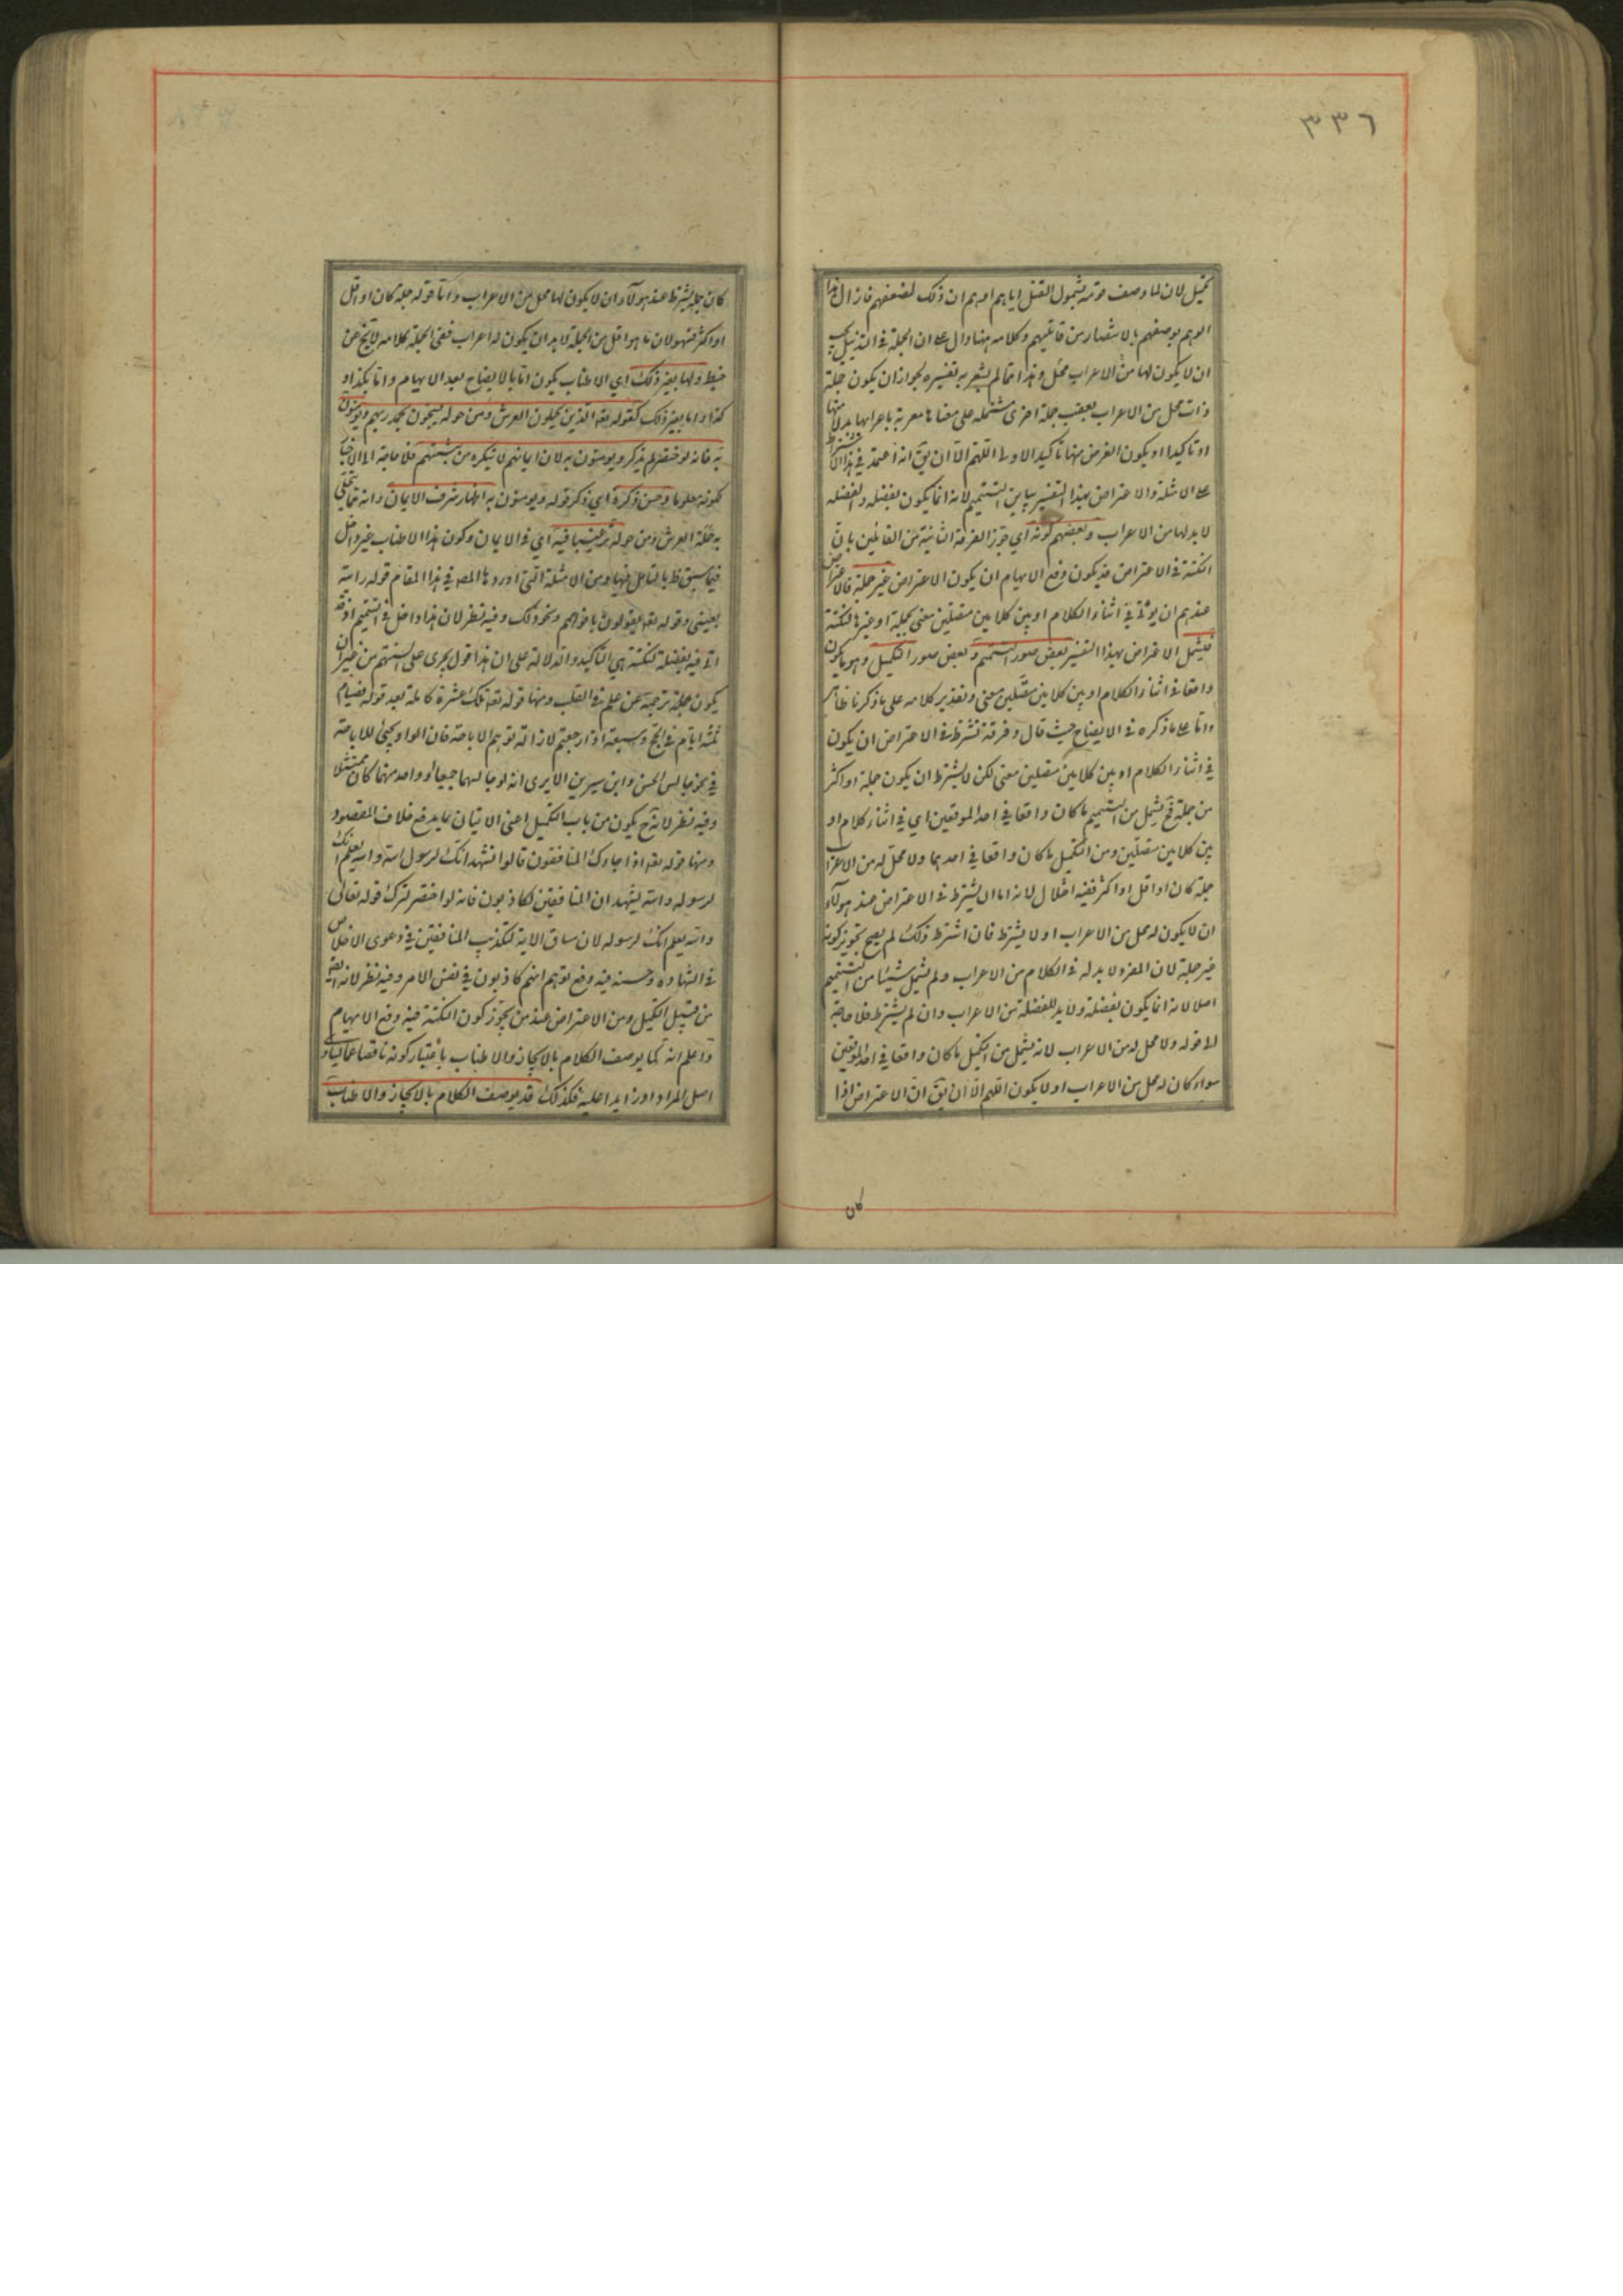 ٣٣٦
تكميل لان لما وصف قومه بشمول القتل اياهم اوهم ان ذلك لضعفهم فازال هذا
الوهم بوصفهم بالانتصار من قاتليهم وكلامه هنا دال على ان الجملة في التذييل يجب
ان لا يكون لها من الاعراب محل وهذا مما لم يشعر به تفسيره لجواز ان يكون جملة
ذات محل من الاعراب بعقب جملة اخرى مشتملة على معناها معربة باعرابها بدلا منها
او تاكيدا او يكون الغرض منها تاكيد الاولى اللهم الا ان يق انه اعتمد في هذا الاشتراط
على الامثلة والاعتراض بهذا التفسير يباين التتميم لانه انما يكون بفضلة والفضلة
لا بد لها من الاعراب وبعضهم كونه اي جوز الفرقة الثانية من القائلين بان
النكتة في الاعتراض قد يكون دفع الايهام ان يكون الاعتراض غير جملة فالاعتراض
عندهم ان يؤتى في اثناء الكلام او بين كلامين متصلين معنى بجملة او غيرها لنكتة
فيشمل الاعتراض بهذا التفسير بعض صور التتميم وبعض صور التكميل وهو ما يكون
واقعا في اثناء الكلام او بين كلامين متصلين معنى وتقدير كلامه على ما ذكرنا ظاهر
واما على ما ذكره في الايضاح حيث قال وفرقة تشترط في الاعتراض ان يكون
في اثناء الكلام او بين كلامين متصلين معنى لكن لا يشترط ان يكون جملة او اكثر
من جملة فح يشمل من التتميم ما كان واقعا في احد الموقعين اي في اثناء كلام او
بين كلامين متصلين ومن التكميل ما كان واقعا في احدهما ولا محل له من الاعراب
جملة كان او اقل او اكثر ففيه اختلال لانه اما ان يشترط في الاعتراض عند هؤلاء
ان لا يكون له محل من الاعراب او لا يشترط فان اشترط ذلك لم يصح تجويز كونه
غير جملة لان المفرد لا بد له في الكلام من الاعراب ولم يشمل شيئا من التتميم
اصلا لانه انما يكون بفضلة ولا بد للفضلة من الاعراب وان لم يشترط فلا حاجة
الى قوله ولا محل له من الاعراب لانه يشمل من التكميل ما كان واقعا في احد الموقعين
سواء كان له محل من الاعراب او لا يكون اللهم الا ان يق ان الاعتراض اذا
كان
كان جملة يشترط عند هؤلاء ان لا يكون لها محل من الاعراب واما قوله جملة كان او اقل
او اكثر فسهو لان ما هو اقل من الجملة لا بد ان يكون له اعراب ففي الجملة كلامه لا يخ عن
خبط ولها بغير ذلك اي الاطناب يكون اما بالايضاح بعد الايهام واما بكذا و
كذا واما بغير ذلك كقوله تعه الذين يحملون العرش ومن حوله يسبحون بحمد ربهم ويؤمنون
به فانه لو اختصر لم يذكر ويؤمنون به لان ايمانهم لا ينكره من يثبتهم فلا حاجة الى الاخبار
لكونه معلوما وحسن ذكره اي ذكر قوله ويؤمنون به اظهار شرف الايمان وانه مما يتحلى
به حملة العرش ومن حوله ترغيبا فيه اي في الايمان وكون هذا الاطناب غير داخل
فيما سبق ظ بالتامل فيها ومن الامثلة التي اوردها المص في هذا المقام قوله راءيته
بعيني وقوله تعه يقولون بافواههم ونحو ذلك وفيه نظر لان هذا داخل في التتميم اذ قد
اتي فيه بفضلة لنكتة هي التاكيد والدلالة على ان هذا قول يجري على السنتهم من غير ان
يكون جملة ترجمة عن علم في القلب ومنها قوله تعه تلك عشرة كاملة بعد قوله فصيام
ثلثة ايام في الحج وسبعة اذا رجعتم لازالة توهم الاباحة فان الواو يجئ للاباحة
في نحو جالس الحسن وابن سيرين الا يرى انه لو جالسهما جميعا او واحد منهما كان ممتثلا
وفيه نظر لانه ح يكون من باب التكميل اعني الاتيان بما يدفع خلاف المقصود
ومنها قوله تعه اذا جاءك المنافقون قالوا نشهد انك لرسول الله والله يعلم انك
لرسوله والله يشهد ان المنافقين لكاذبون فانه لو اختصر لترك قوله تعالى
والله يعلم انك لرسوله لان مساق الاية لتكذيب المنافقين في دعوى الاخلاص
في الشهادة وحسنه فيه دفع توهم انهم كاذبون في نفس الامر وفيه نظر لانه ايضا
من قبيل التكميل ومن الاعتراض عند من يجوز كون النكتة فيه دفع الايهام
واعلم انه كما يوصف الكلام بالايجاز والاطناب باعتبار كونه ناقصا عما يساوي
اصل المراد او زايدا عليه فكذلك قد يوصف الكلام بالايجاز والاطناب